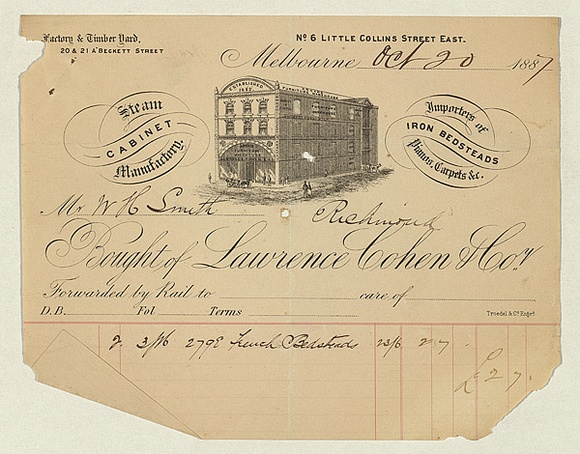 Factory & Timber Yard,
20 & 21 A'BECKETT STREET
No 6 LITTLE COLLINS STREET EAST.
Melbourne Oct 20 1887
Steam
CABINET
Manufactory.
ESTABLISHED
Importers of
IRON BEDSTEADS
Pianos, Carpets &c.
Mr W H Smith Richmond
Bought of Lawrence Cohen & Co.
Forwarded by Rail to care of
D.B. Fol Terms
Troedel & Co Engrs
2 3/6 279E French Bedsteads 23/6 2 7
£ 2 7